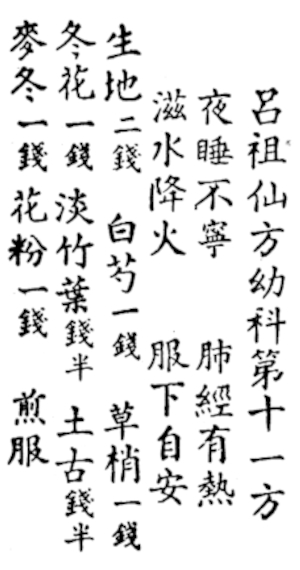 呂祖仙方幼科第十一方
夜睡不寧 肺經有熱
滋水降火 服下自安
生地二錢 白芍一錢 草梢一錢
冬花一錢 淡竹葉錢半 土古錢半
麥冬一錢 花粉一錢 煎服